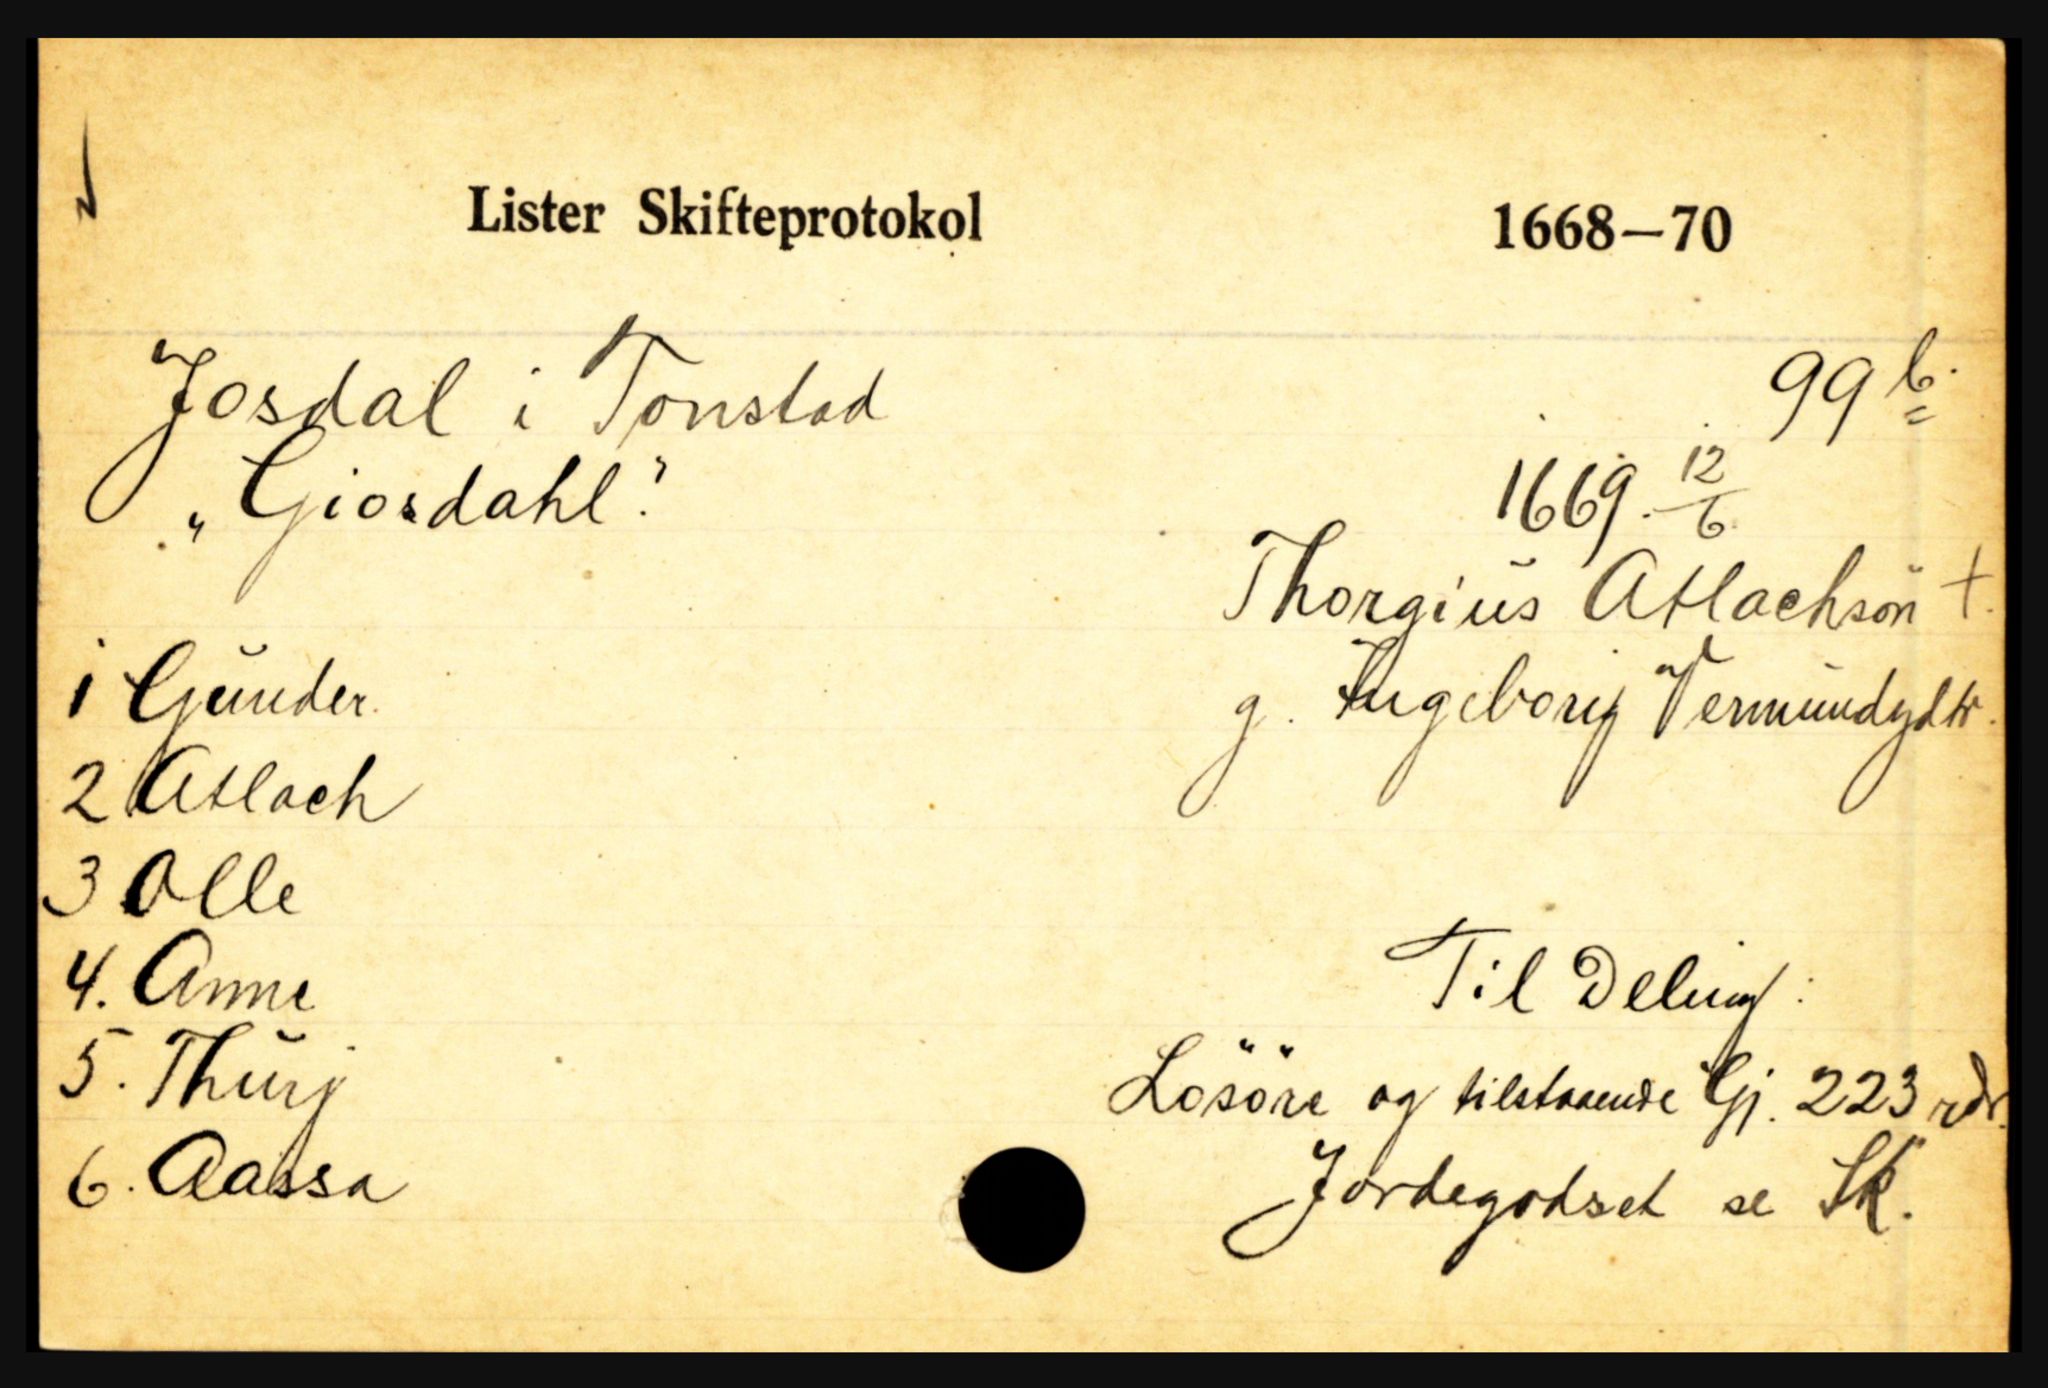 Lister Skifteprotokol 1668—70
Josdal i Tonstad 99 b.
„Giosdahl". 1669. 12/6
Thorgiŭs Atlachsön †.
1 Gŭnder. g. Ingeborg Vermŭndsdtr.
2 Atlach
3 Olle
4. Anne Til Deling:
5. Thŭrj Lösöre og tilstaaende Gj. 223 rdr.
6. Aassa Jordegodset se Sk.